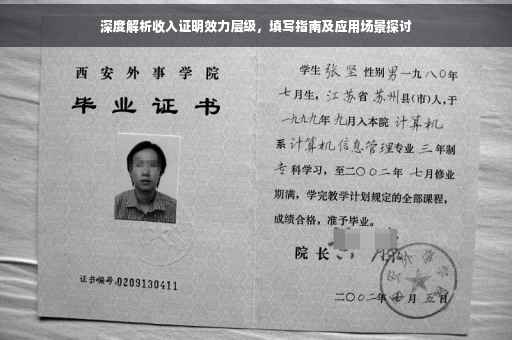 深度解析收入证明效力层级，填写指南及应用场景探讨
西安外事学院
毕业证书
证书编号:0209130411
学生 张坚 性别 男 一九八〇年
七月生，江苏省 苏州县(市)人，于
一九九九年 九月入本院 计算机
系 计算机信息管理专业 三 年制
专 科学习，至二〇〇二年 七月修业
期满，学完教学计划规定的全部课程，
成绩合格，准予毕业。
院长
二〇〇二年 月 五日